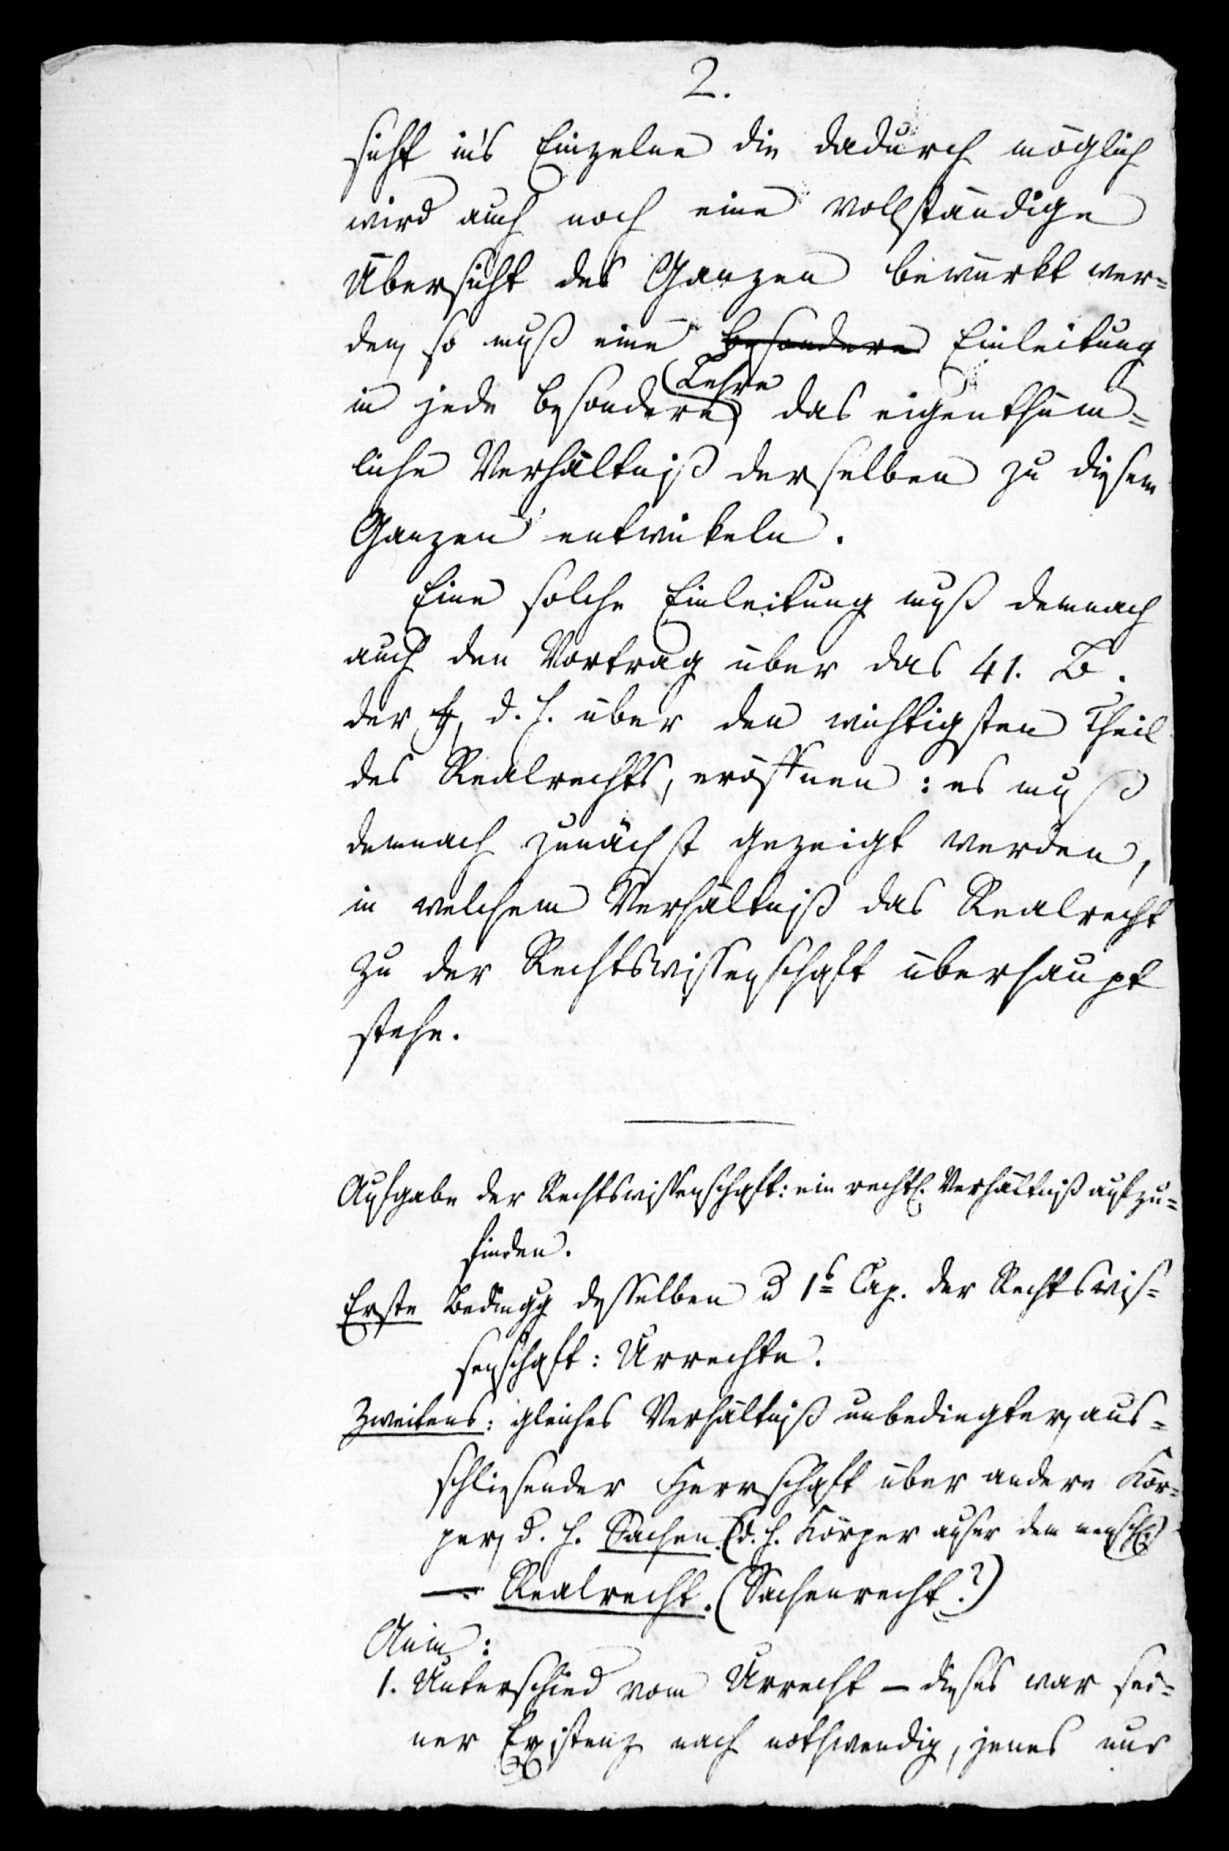 2.
sicht ins Einzelne die dadurch möglich
wird auch noch eine vollständige
Übersicht des Ganzen bewürkt wer=
den, so muß eine besondere Einleitung
Lehre
in jede besondere das eigenthüm=
liche Verhältniß derselben zu diesem
Ganzen entwikeln.
Eine solche Einleitung muß demnach
auch den Vortrag über das 41. B.
der ff, d. h. über den wichtigsten Theil
des Realrechts, eröffnen: es muß
demnach zunächst gezeigt werden,
in welchem Verhältniß das Realrecht
zu der Rechtswissenschaft überhaupt
stehe.
Aufgabe der Rechtswissenschaft: ein rechtl. Verhältniß aufzu=
finden.
Erste Bedingg desselben u 1s Cap. der Rechtswis=
senschaft: Urrechte.
Zweitens: gleiches Verhältniß unbedingter, aus=
schliesender Herrschaft über andere Kör=
per, d. h. Sachen. (d. h. Körper auser dem menschl.)
— Realrecht. (Sachenrecht?)
Anm:
1. Unterschied vom Urrecht — dieses war sei=
ner Existenz nach nothwendig, jenes nur